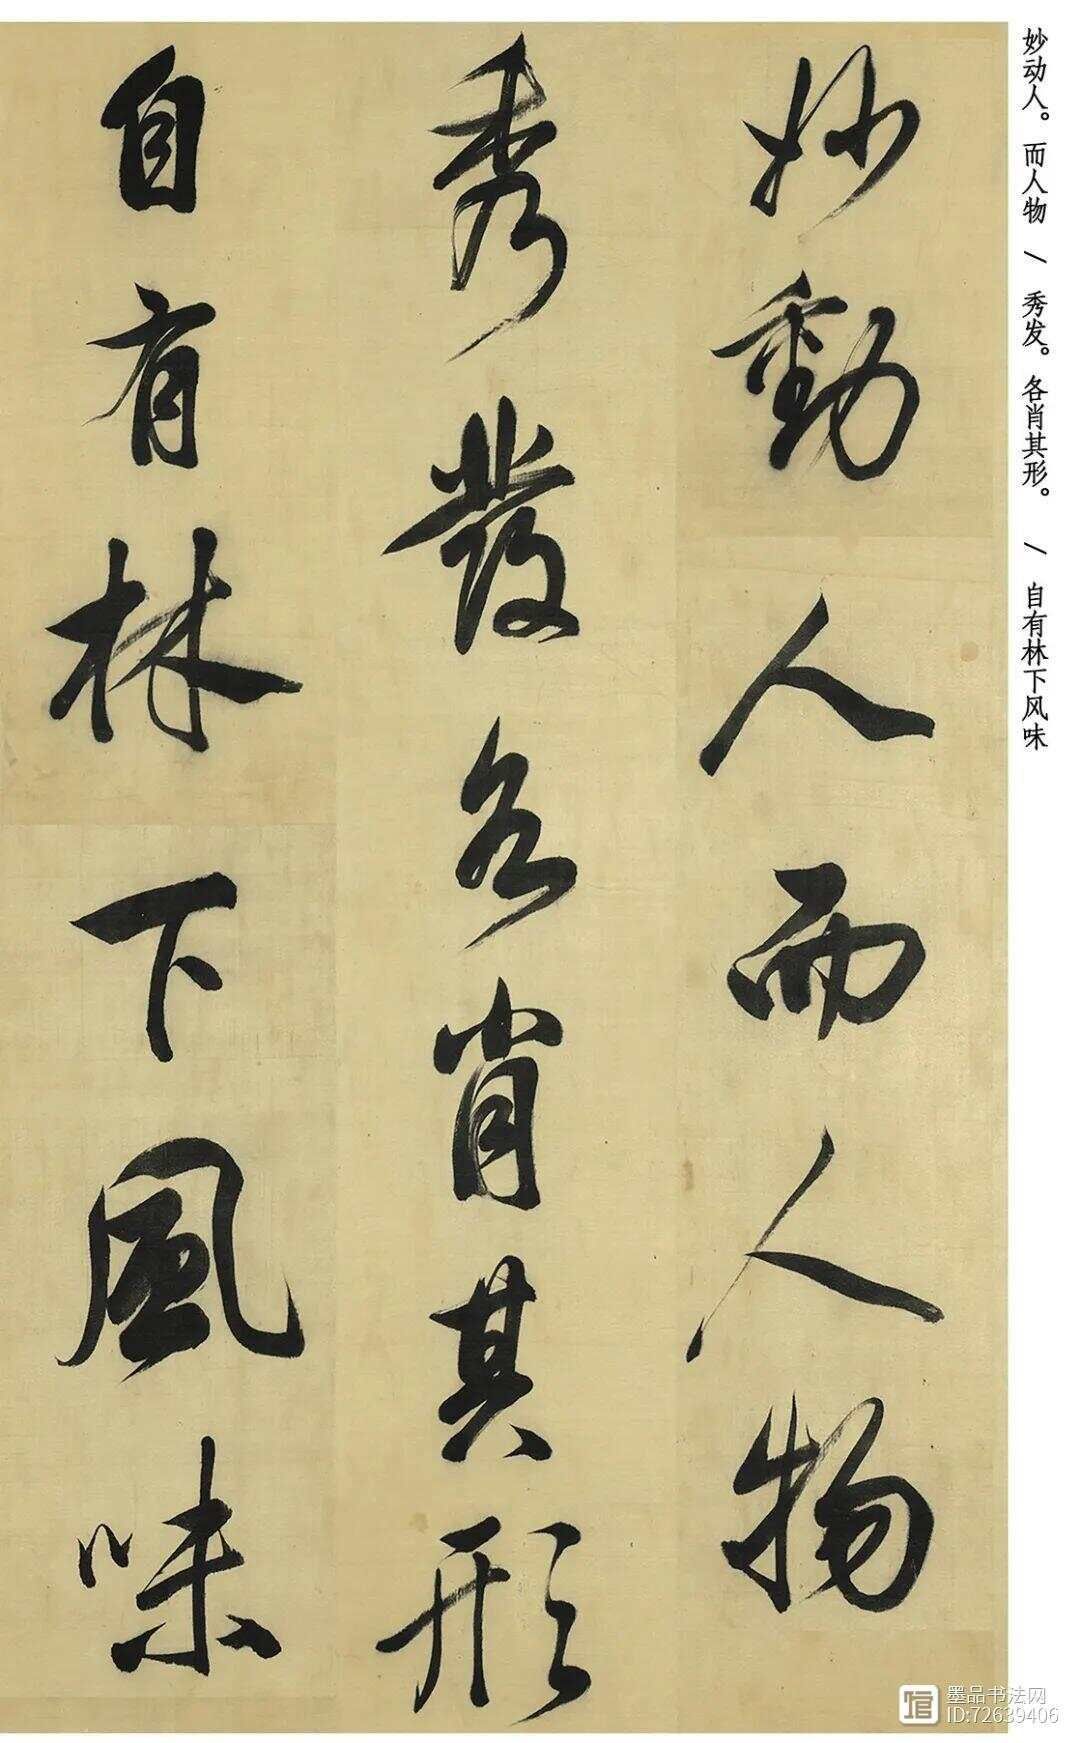 妙动人。而人物 / 秀发。各肖其形。 / 自有林下风味
妙動人而人物
秀發各肖其形
自有林下風味
墨品书法网
ID:72639406